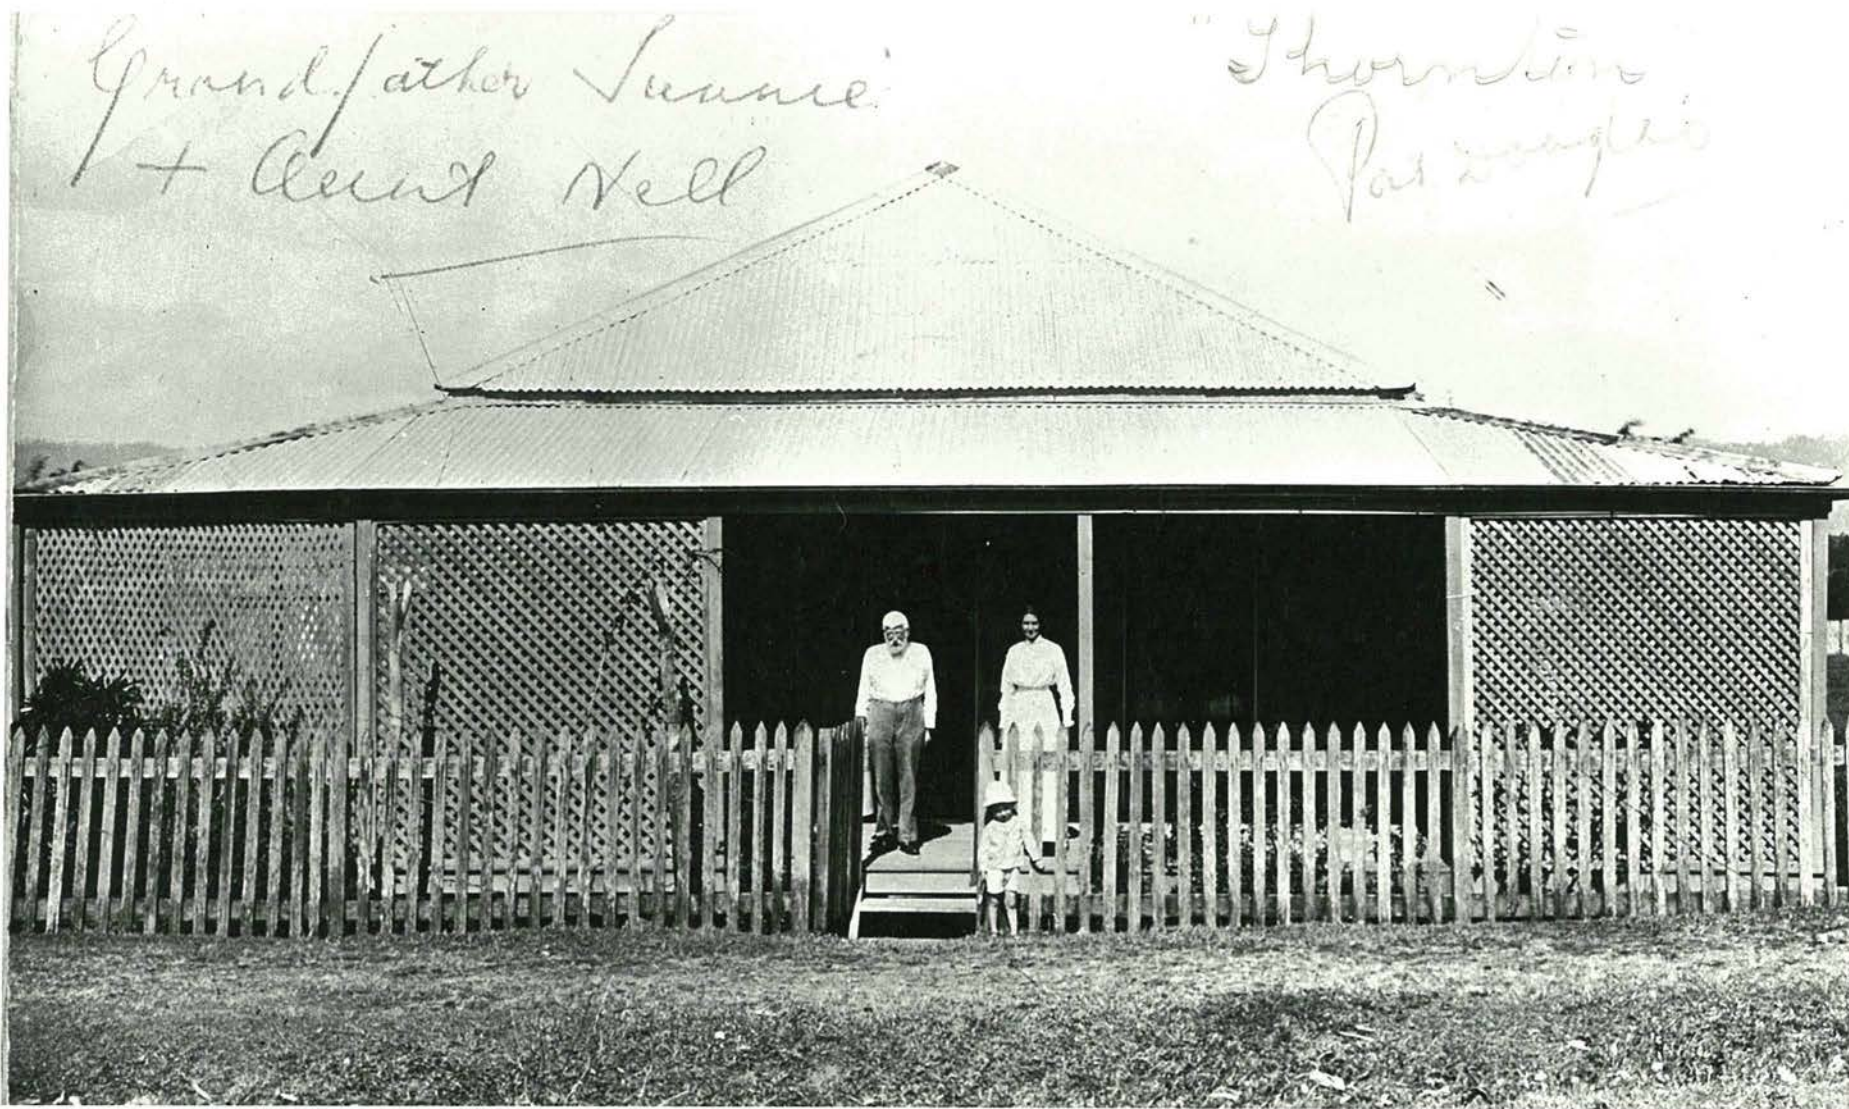 Grandfather
+ Aunt Nell
"Thornton
Port Douglas